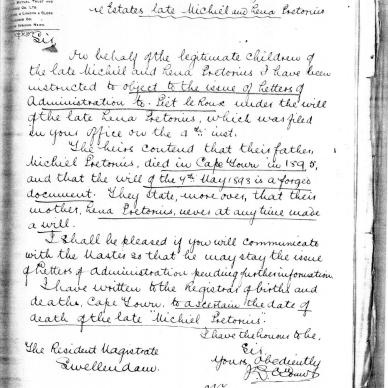 re Estates late Michiel and Lena Pretorius
MUTUAL TRUST AND
CO. LTD.
LONDON & GLOBE
Sir
On behalf of the legitimate children of
the late Michiel and Lena Pretorius I have been
instructed to object to the issue of Letters of
Administration to Piet le Roux under the will
of the late Lena Pretorius, which was filed
in your office on the 9th inst.
The heirs contend that their father
Michiel Pretorius, died in Cape Town in 1890,
and that the will of the 4th May 1893 is a forged
document. They state, moreover, that their
mother, Lena Pretorius, never at any time made
a will.
I shall be pleased if you will communicate
with the Master so that he may stay the issue
of Letters of Administration pending further information.
I have written to the Registrar of births and
deaths, Cape Town, to ascertain the date of
death of the late "Michiel Pretorius".
I have the honour to be,
Sir
The Resident Magistrate
Yours obediently
Swellendam.